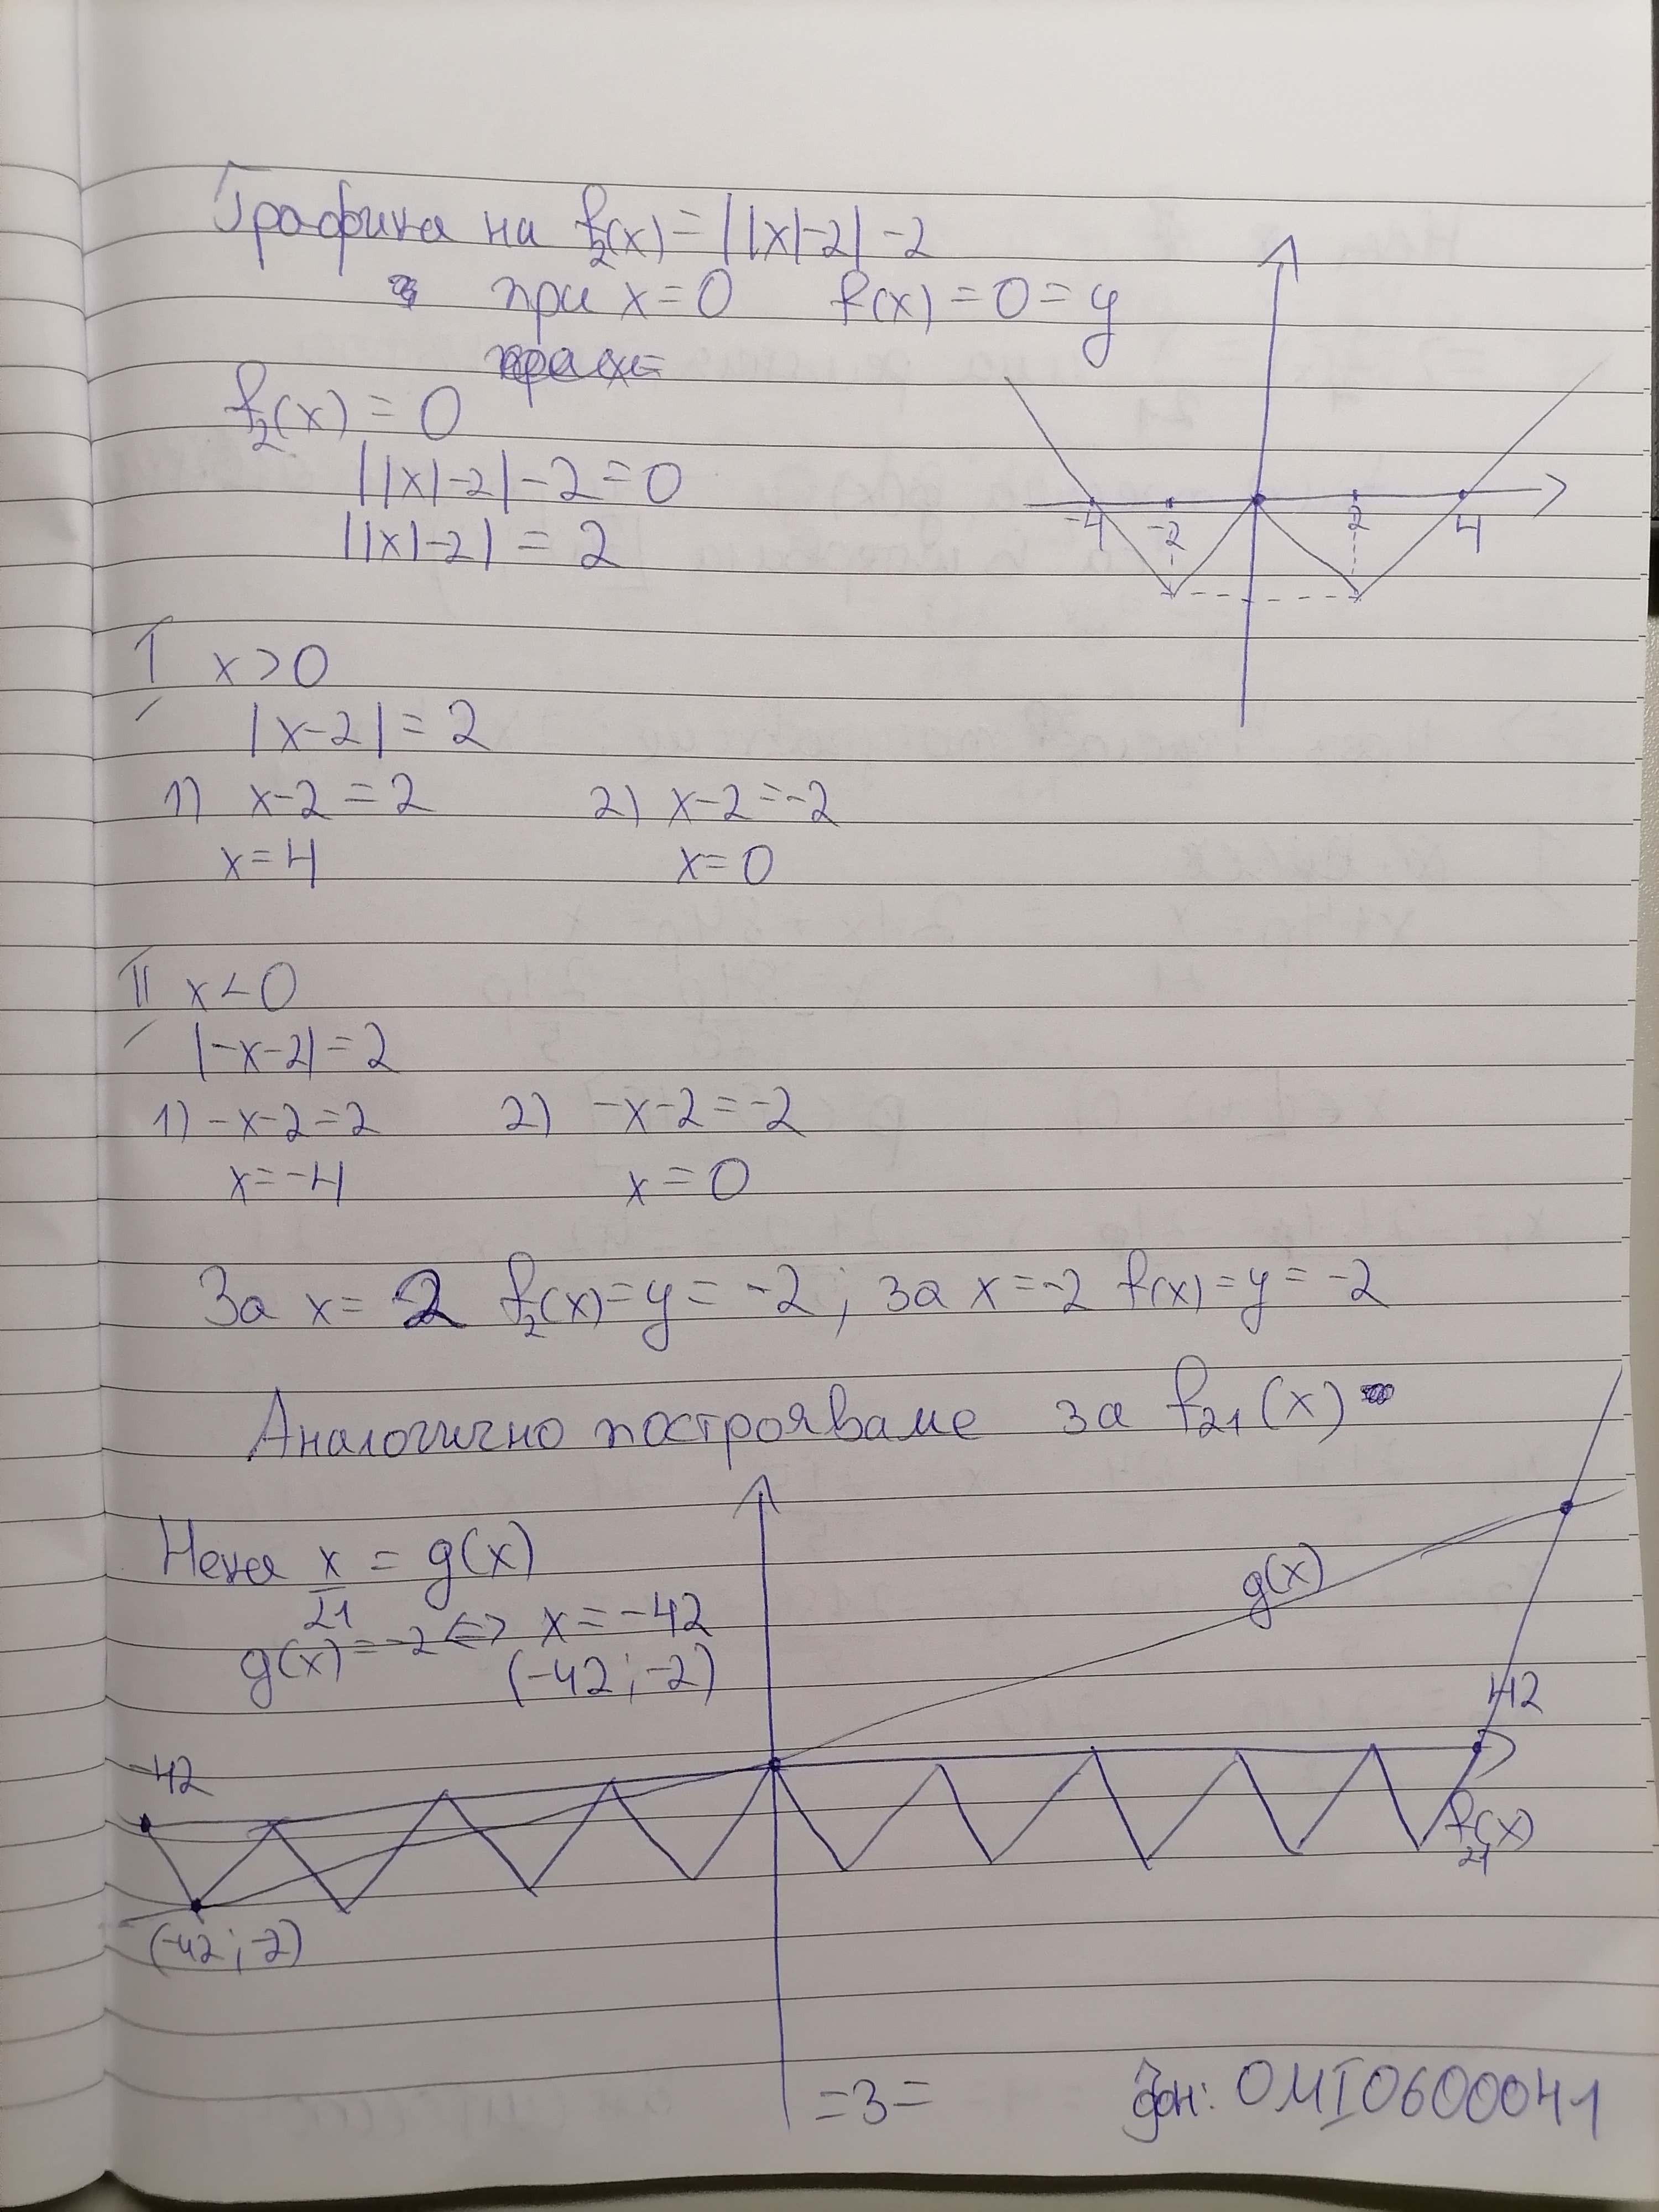 Графика на f₂(x) = ||x|-2| -2
при x=0 f(x) = 0 = y
f₂(x) = 0
||x|-2| -2 = 0
||x|-2| = 2
-4 -2 2 4
I x>0
|x-2| = 2
1) x-2 = 2 2) x-2 = -2
x = 4 x = 0
II x<0
|-x-2| = 2
1) -x-2 = 2 2) -x-2 = -2
x = -4 x = 0
За x = 2 f₂(x) = y = -2 ; за x = -2 f(x) = y = -2
Аналогично построяваме за f₂₁(x)
Нека x/21 = g(x)
g(x) = -2 <=> x = -42
(-42 ; -2)
g(x)
42
-42
f₂₁(x)
(-42 ; -2)
=3= фн: 0MI0600041